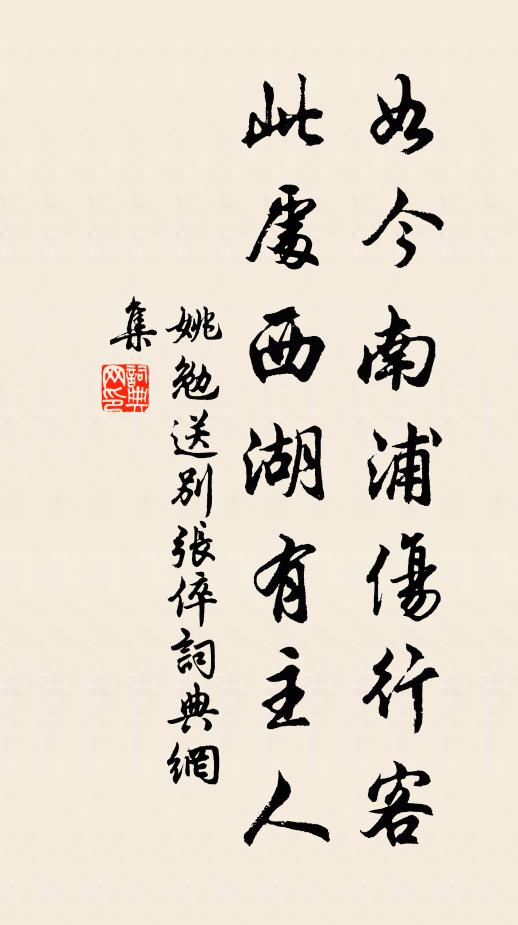 如今南浦傷行客
此處西湖有主人
姚勉送别張倅詞典網
集
詞典
网印